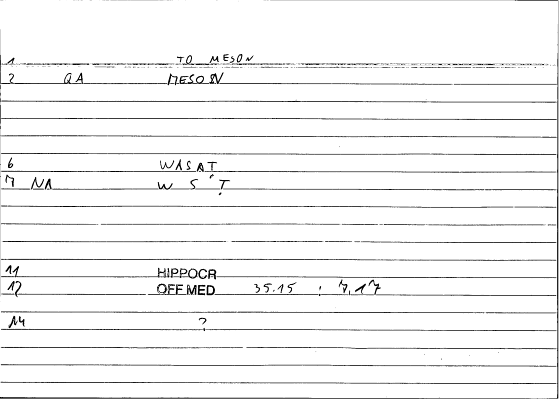 1 TO MESON
2 QA MESON
6 WASAT
7 NA W S T
11 HIPPOCR
12 OFF MED 35.15 : 7,17
14 ?